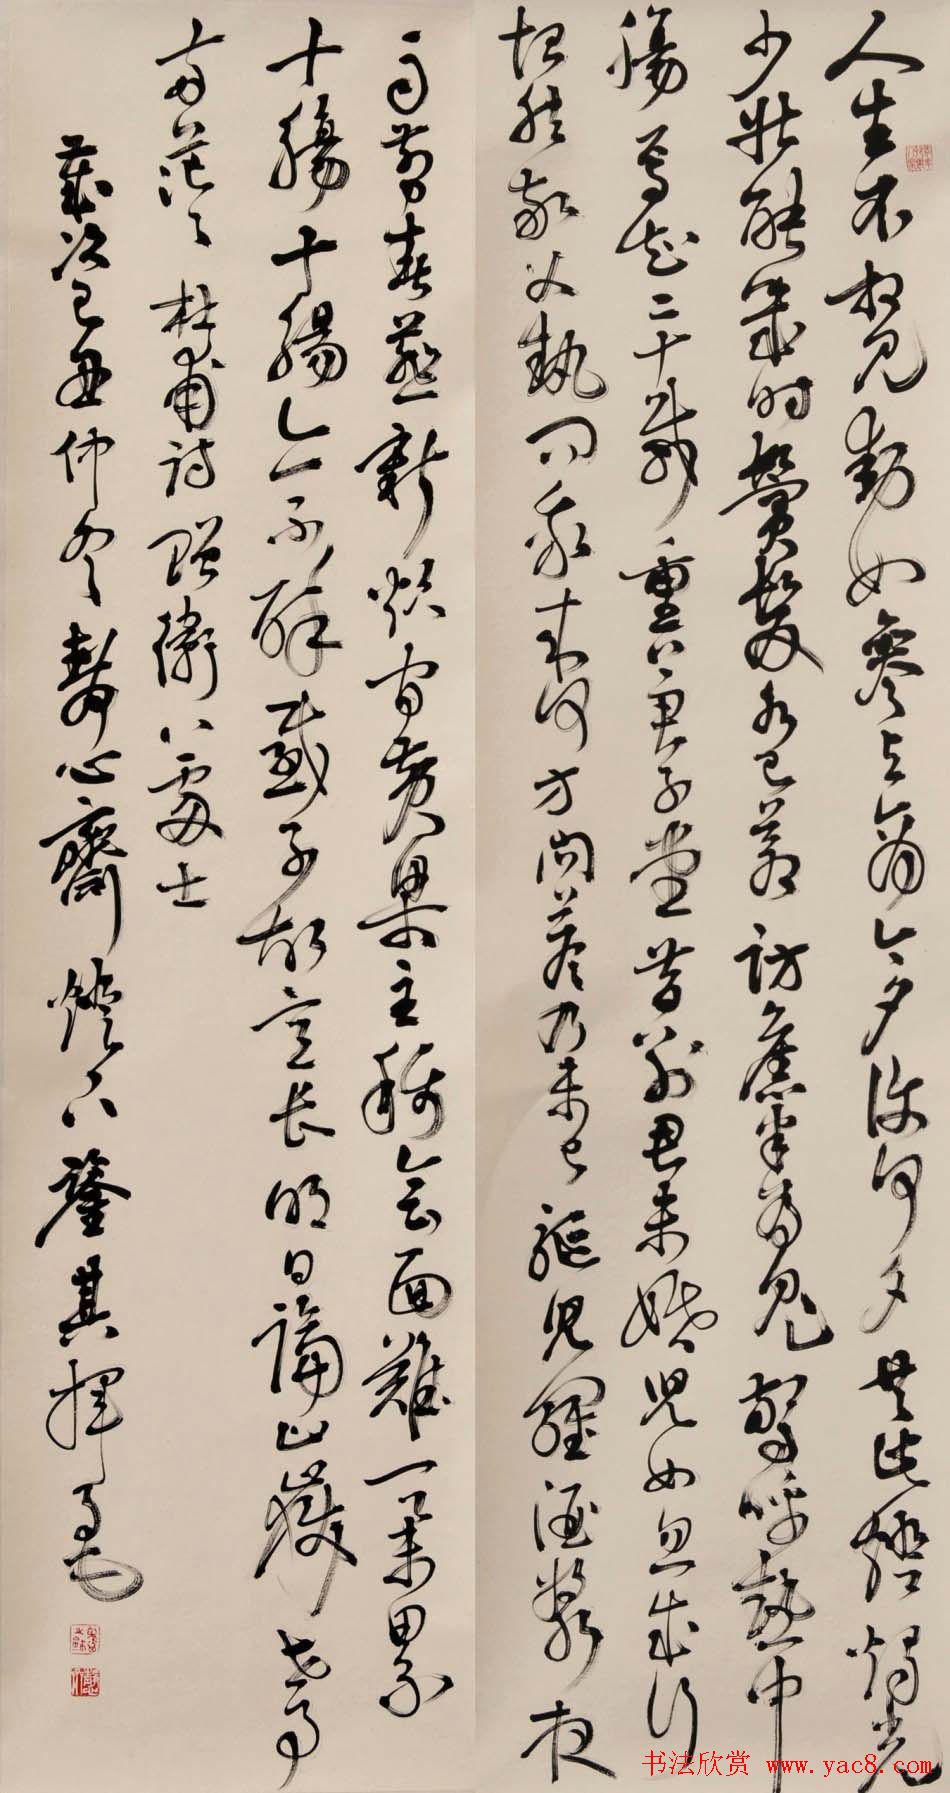 人生不相見動如參與商今夕復何夕共此燈燭光
少壯能幾時鬢髮各已蒼訪舊半為鬼驚呼熱中
腸焉知二十載重上君子堂昔別君未婚兒女忽成行
怡然敬父執問我來何方問答乃未已驅兒羅酒漿夜
雨剪春韭新炊間黃粱主稱會面難一舉累
十觴十觴亦不醉感子故意長明日隔山嶽世事
兩茫茫 杜甫詩贈衛八處士
歲次己丑仲冬心齋燈下其揮毫
书法欣赏 www.yac8.com